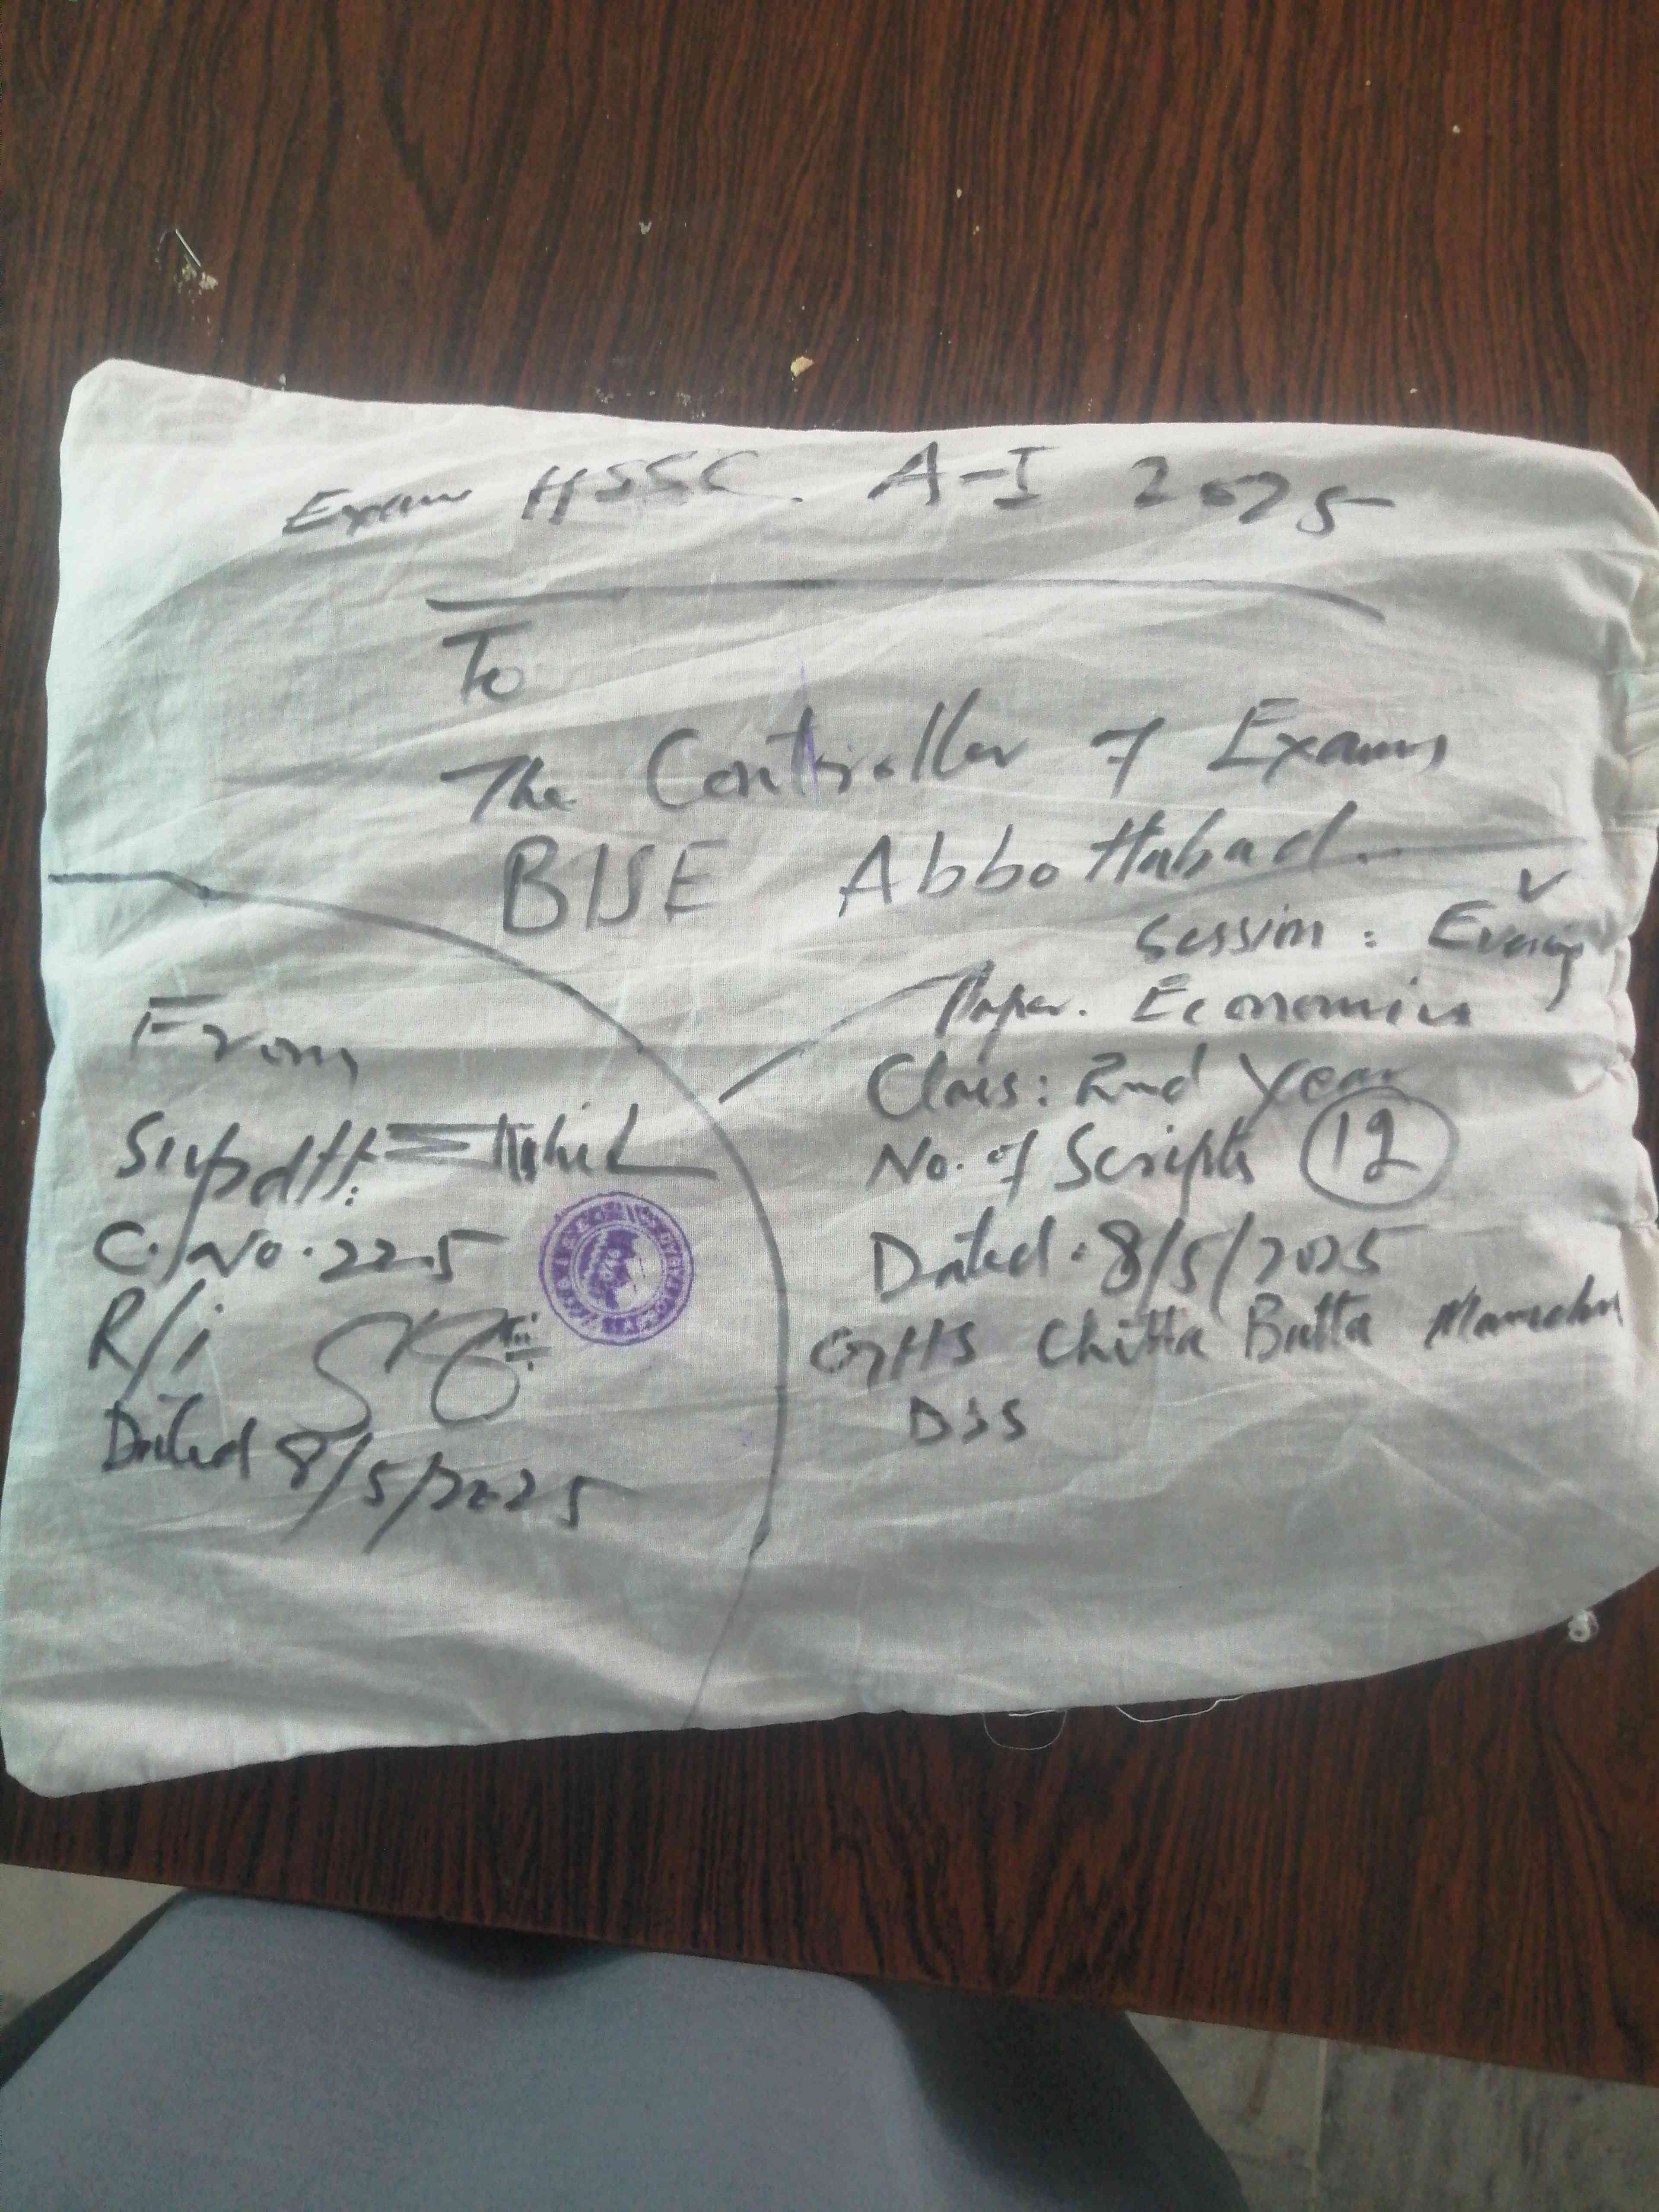 Exam HSSC. A-I 2025
To
The Controller of Exams
BISE Abbottabad.
Session: Evening
Paper. Economics
Class: 2nd Year
No. of Scripts 12
Dated: 8/5/2025
GHS Chitta Batta Mansehra
From
Supdtt:
C/No. 225
R/i
Dated 8/5/2025